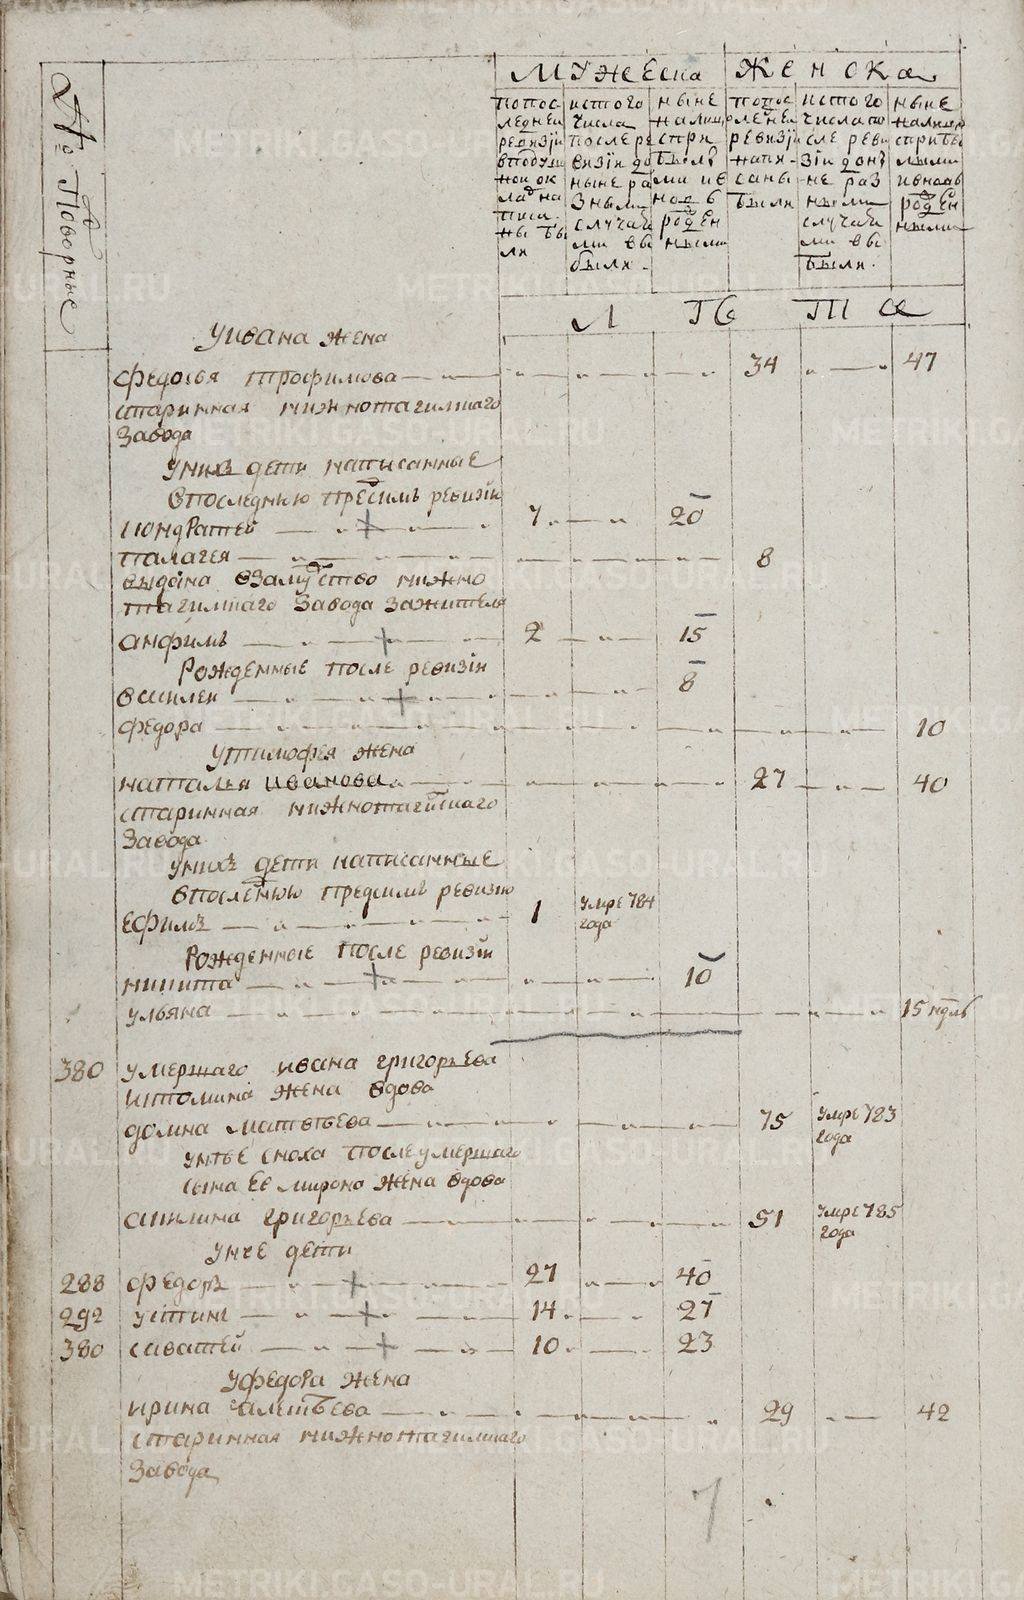 № Подворные
мужеска женска
попос
леднеи
ревизiи
вподуш
ной ок
лад на
писа
ны бы
ли
истого
числа
после ре
визiи до
ныне ра
зными
случаи
ми вы
были
ныне
налиц
спри
былы
ми ив
нов
рожден
ными
попос
леднеи
ревизiи
напи-
саны
были
истого
числа по
сле реви
зiи доны
не раз
ными
случаи
ми вы
были.
ныне
налицо
сприбы
лыми
ивновь
рожден
ными
Л Ѣ Т А
Уивана жена
федосья трофимова 34 47
старинная нижнотагилскаго
завода
Уних дети написанные
впоследнюю пред симъ ревизiи
кондратей 7 20
палагея 8
выдана взамужство нижно
тагилскаго завода зажителя
анфимъ 2 15
Рожденные после ревизiи
василеи 8
федора 10
Утимофея жена
наталья иванова 27 40
старинная нижнотагилскаго
завода
унихъ дети написанные
впоследнюю предсимъ ревизiю
Ефимъ 1 умре 784
года
Рожденные после ревизiи
никита 10
ульяна 15 недль
380 умершаго ивана григорьева
истомина жена вдова
домна матвѣева 75 умре 783
года
унѣе сноха после умершаго
сына ее мирона жена вдова
акилина григорьева 51 умре 785
года
унее дети
288 федоръ 27 40
292 устинъ 14 27
380 саватей 10 23
уфедора жена
ирина алексѣева 29 42
старинная нижнотагилскаго
завода
7
METRIKI.GASO-URAL.RU